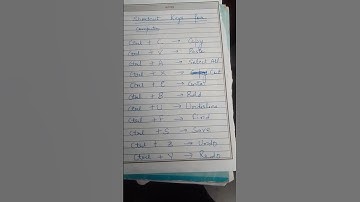 Shortcut Keys for
Computer
Ctrl + C → Copy
Ctrl + V → Paste
Ctrl + A → Select All
Ctrl + X → Cut
Ctrl + E → Center
Ctrl + B → Bold
Ctrl + U → Underline
Ctrl + F → Find
Ctrl + S → Save
Ctrl + Z → Undo
Ctrl + Y → Redo